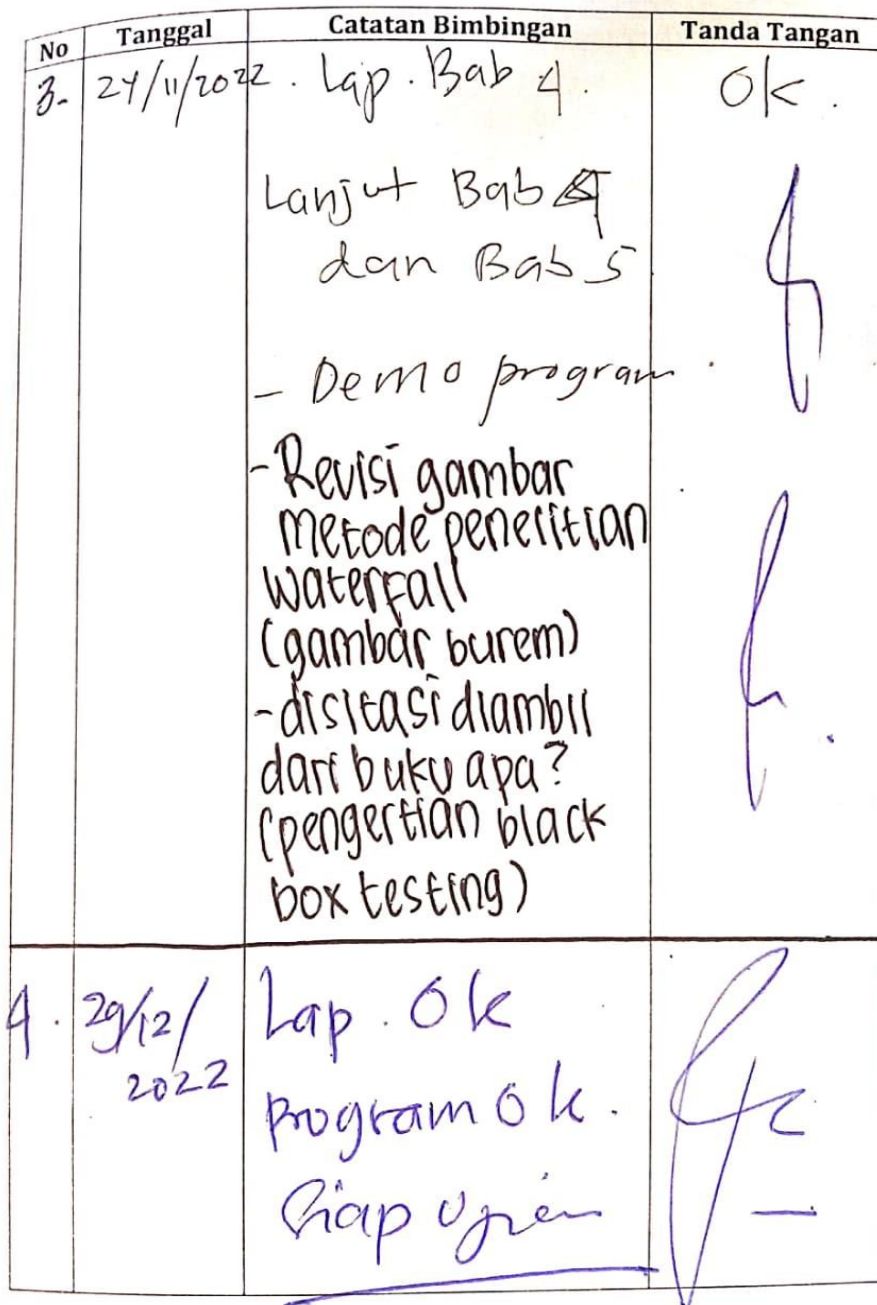 No Tanggal Catatan Bimbingan Tanda Tangan
3. 24/11/2022. Lap. Bab 4. Ok.
Lanjut Bab 4
dan Bab 5
- Demo program.
- Revisi gambar
metode penelitian
waterfall
(gambar burem)
- disitasi diambil
dari buku apa?
(pengertian black
box testing)
4. 29/12/ Lap. Ok
2022 Program Ok.
Siap Ujian